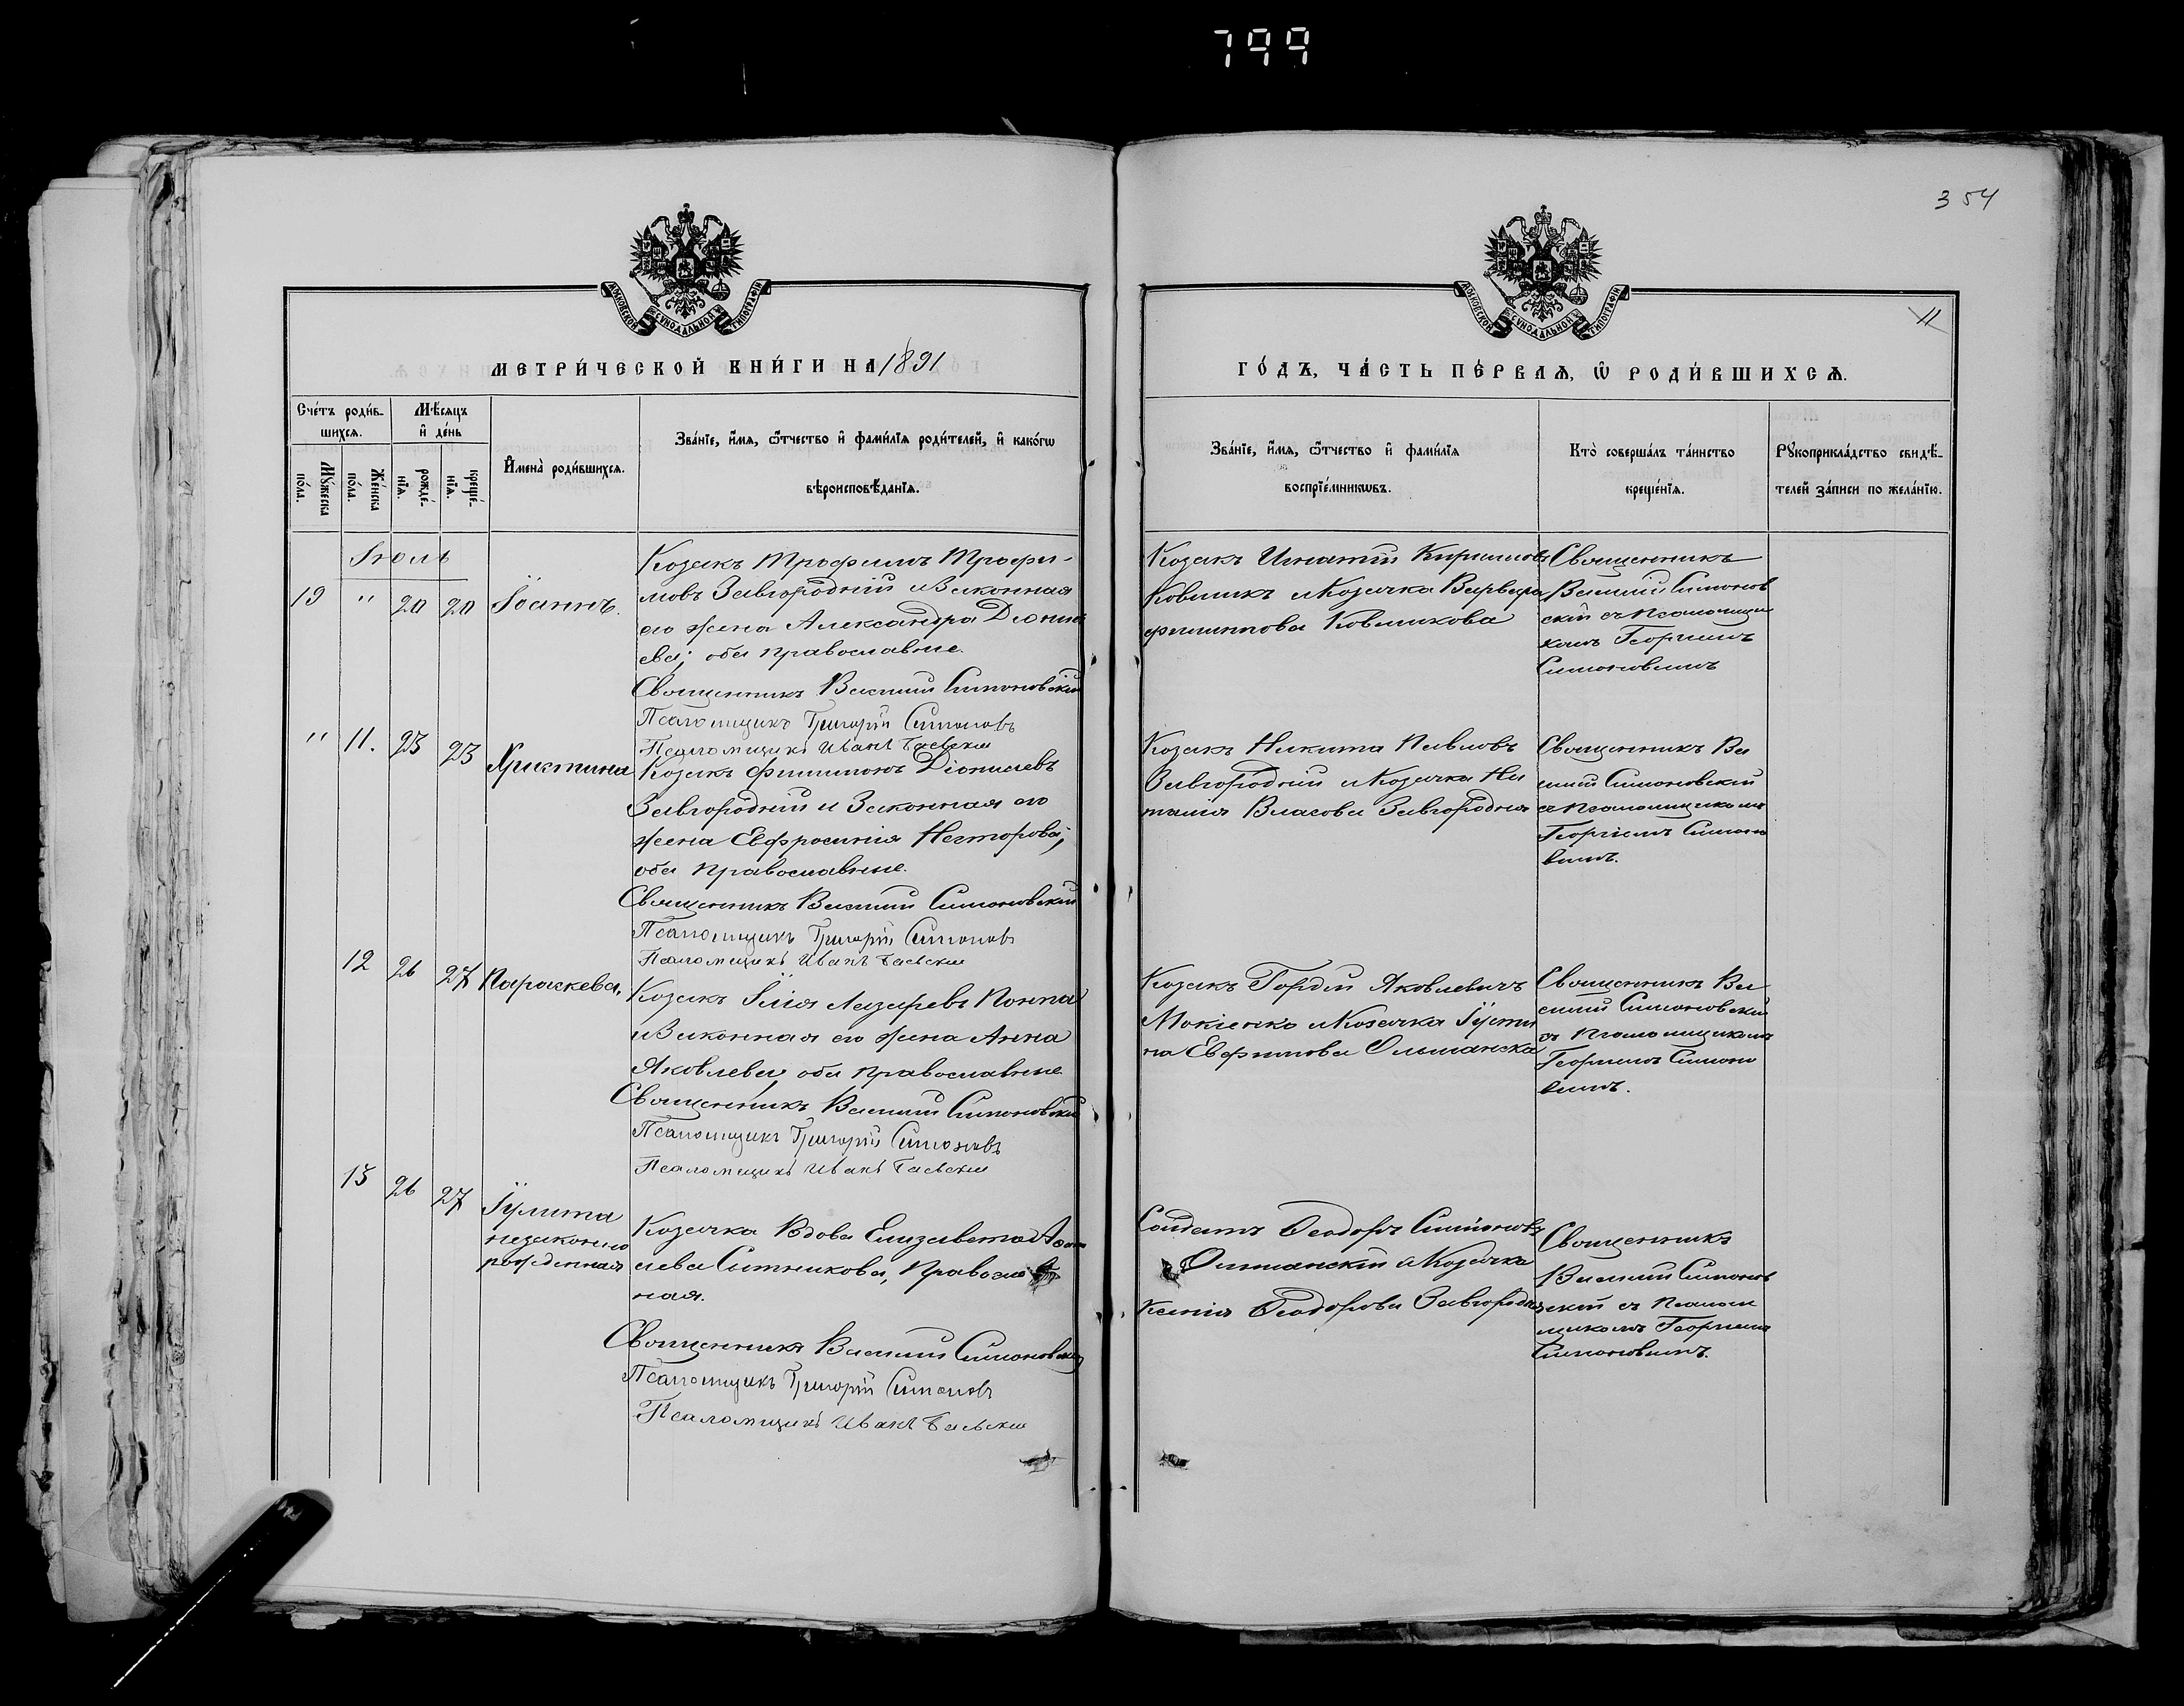 799
354
11
МОСКОВСКОЙ СѴНОДАЛЬНОЙ ТИПОГРАФІИ
МОСКОВСКОЙ СѴНОДАЛЬНОЙ ТИПОГРАФІИ
МЕТРИ́ЧЕСКОЙ КНИ́ГИ НА 1891
ГО́ДЪ, ЧА́СТЬ ПЕ́РВАѦ, Ѡ РОДИ́ВШИХСѦ.
Сче́тъ роди́в-
шихсѧ.
Мꙋжеска по́ла.
Же́нска по́ла.
Мѣ́сѧцъ
и҆ де́нь
рожде́-
нїѧ.
креще́-
нїѧ.
И҆мена̀ роди́вшихсѧ.
Зва́нїе, и҆́мѧ, ѻ҆́тчество и҆ фами́лїѧ роди́телей, и҆ како́гѡ
вѣроисповѣ́данїѧ.
Зва́нїе, и҆́мѧ, ѻ҆́тчество и҆ фами́лїѧ
воспрїе́мникѡвъ.
Кто̀ соверша́лъ та́инство
креще́нїѧ.
Рꙋкоприкла́дство свидѣ́-
телей за́писи по жела́нїю.
Іюль
19 " 20 20 Іоаннъ.
Козакъ Трофимъ Трофи-
мовъ Завгородній и Законная
его жена Александра Діониси
ева; оба православные.
Священникъ Василій Симоновскій
Псаломщикъ Григорій Симоновъ
Псаломщикъ Иванъ
Козакъ Игнатій Кириловъ
Ковшикъ и Козачка Варвара
Филиппова Ковшикова
Священникъ
Василій Симонов
скій съ Псаломщи
комъ Георгіемъ
Симоновымъ
" 11. 23 23 Христина
Козакъ Филимонъ Діонисіевъ
Завгородній и Законная его
жена Евфросинія Несторова;
оба православные.
Священникъ Василій Симоновскій
Псаломщикъ Григорій Симоновъ
Псаломщикъ Иванъ
Козакъ Никита Павловъ
Завгородній и Козачка На
талія Власова Завгородня
Священникъ Ва
силій Симоновскій
съ Псаломщикомъ
Георгіемъ Симоно
вымъ.
12 26 27 Параскева.
Козакъ Илія Лазаревъ Поппа
и Законная его жена Анна
Яковлева, оба православные
Священникъ Василій Симоновскій
Псаломщикъ Григорій Симоновъ
Псаломщикъ Иванъ
Козакъ Гордій Яковлевичъ
Мокіенко и Козачка Іусти
на Евфимова Ольшанска
Священникъ Ва
силій Симоновскій
съ Псаломщикомъ
Георгіемъ Симоно
вымъ.
13 26 27 Іулита
незаконно
рожденная
Козачка Вдова Елизавета
Ситникова, Православ
ная.
Священникъ Василій Симоновскій
Псаломщикъ Григорій Симоновъ
Псаломщикъ Иванъ
Солдатъ Ѳеодоръ Симоновъ
Ольшанскій и Козачка
Ксенія Ѳеодорова Завгородня
Священникъ
Василій Симонов
скій съ Псалом
щикомъ Георгіемъ
Симоновымъ.